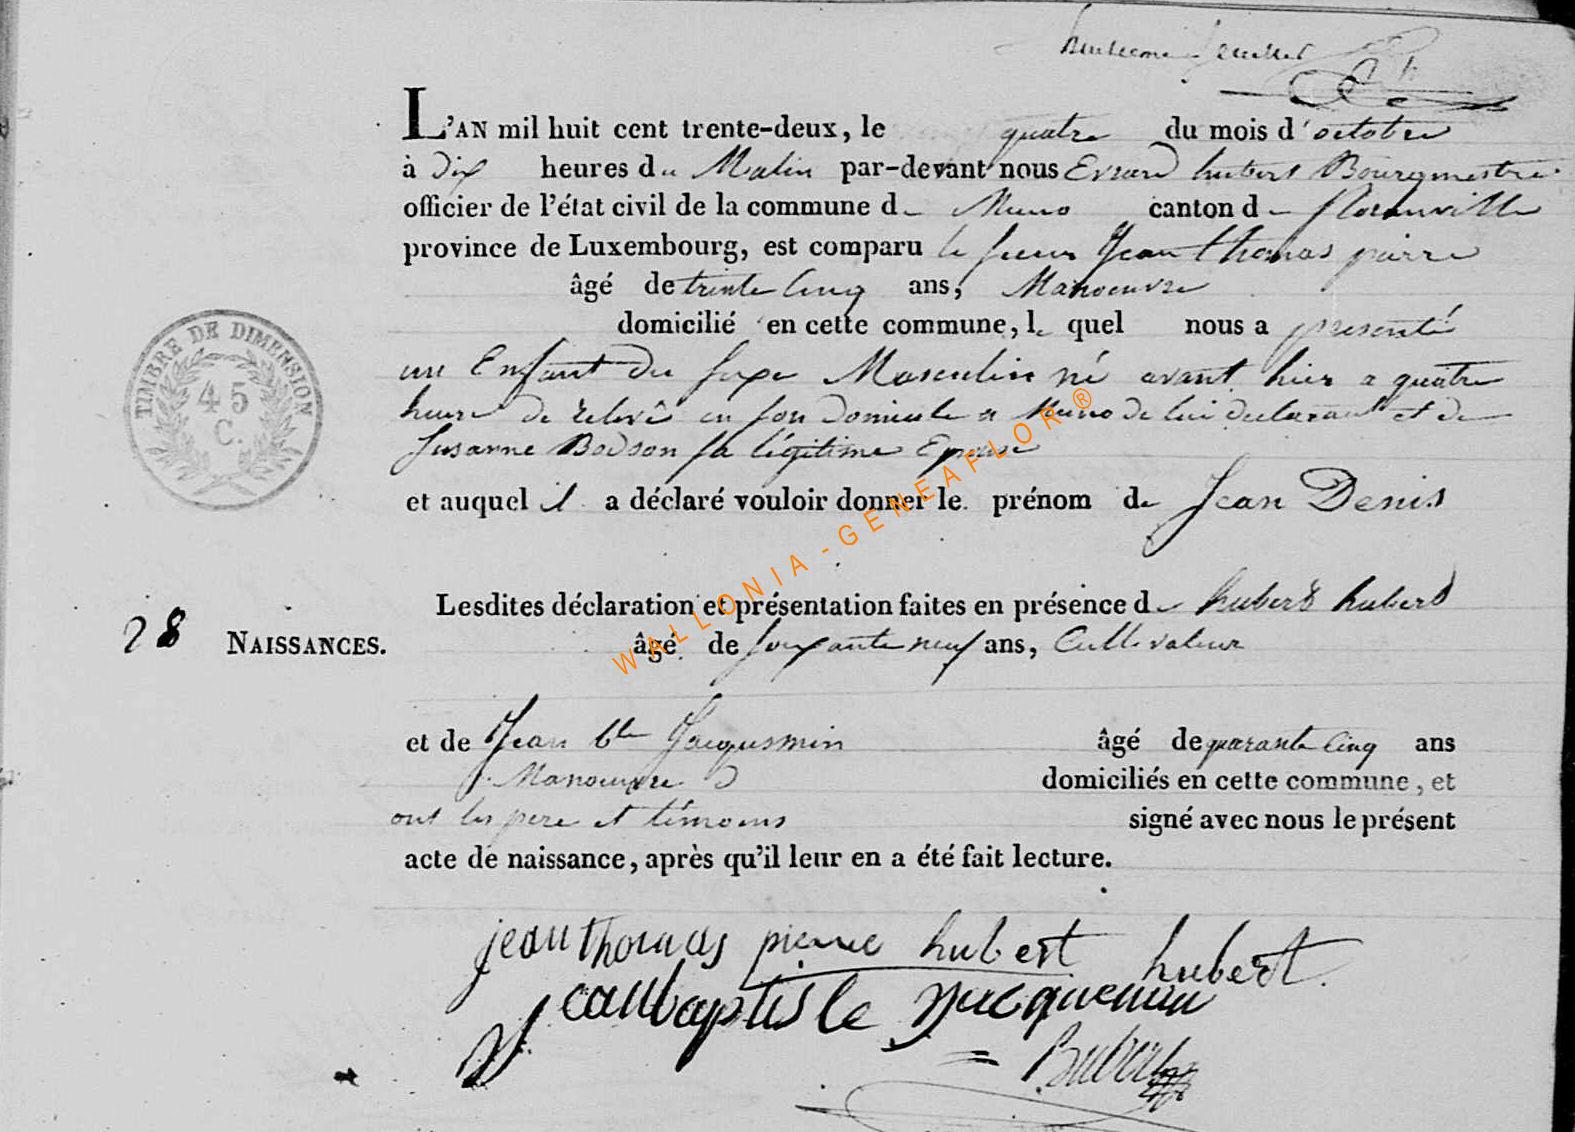 feuillet
L'AN mil huit cent trente-deux, le quatre du mois d'octobre
à dix heures du Matin par-devant nous Evrard hubert Bourgmestre
officier de l'état civil de la commune de Muno canton de florenville
province de Luxembourg, est comparu le sieur Jean thomas pierre
âgé de trente cinq ans, Manoeuvre
domicilié en cette commune, le quel nous a presenté
un Enfant du sexe Masculin né avant hier a quatre
heure de relevé en son domicile a Muno de lui declarant et de
Susanne Bodson sa légitime Epouse
et auquel il a déclaré vouloir donner le prénom de Jean Denis
Lesdites déclaration et présentation faites en présence de hubert hubert
28 NAISSANCES. âgé de soixante neuf ans, Cultivateur
et de Jean bte Jacquemin âgé de quarante cinq ans
Manoeuvre domiciliés en cette commune, et
ont les pere et témoins signé avec nous le présent
acte de naissance, après qu'il leur en a été fait lecture.
jean thomas pierre hubert hubert
jean baptiste jacquemin
TIMBRE DE DIMENSION
45
C.
WALLONIA-GENEAFLOR®